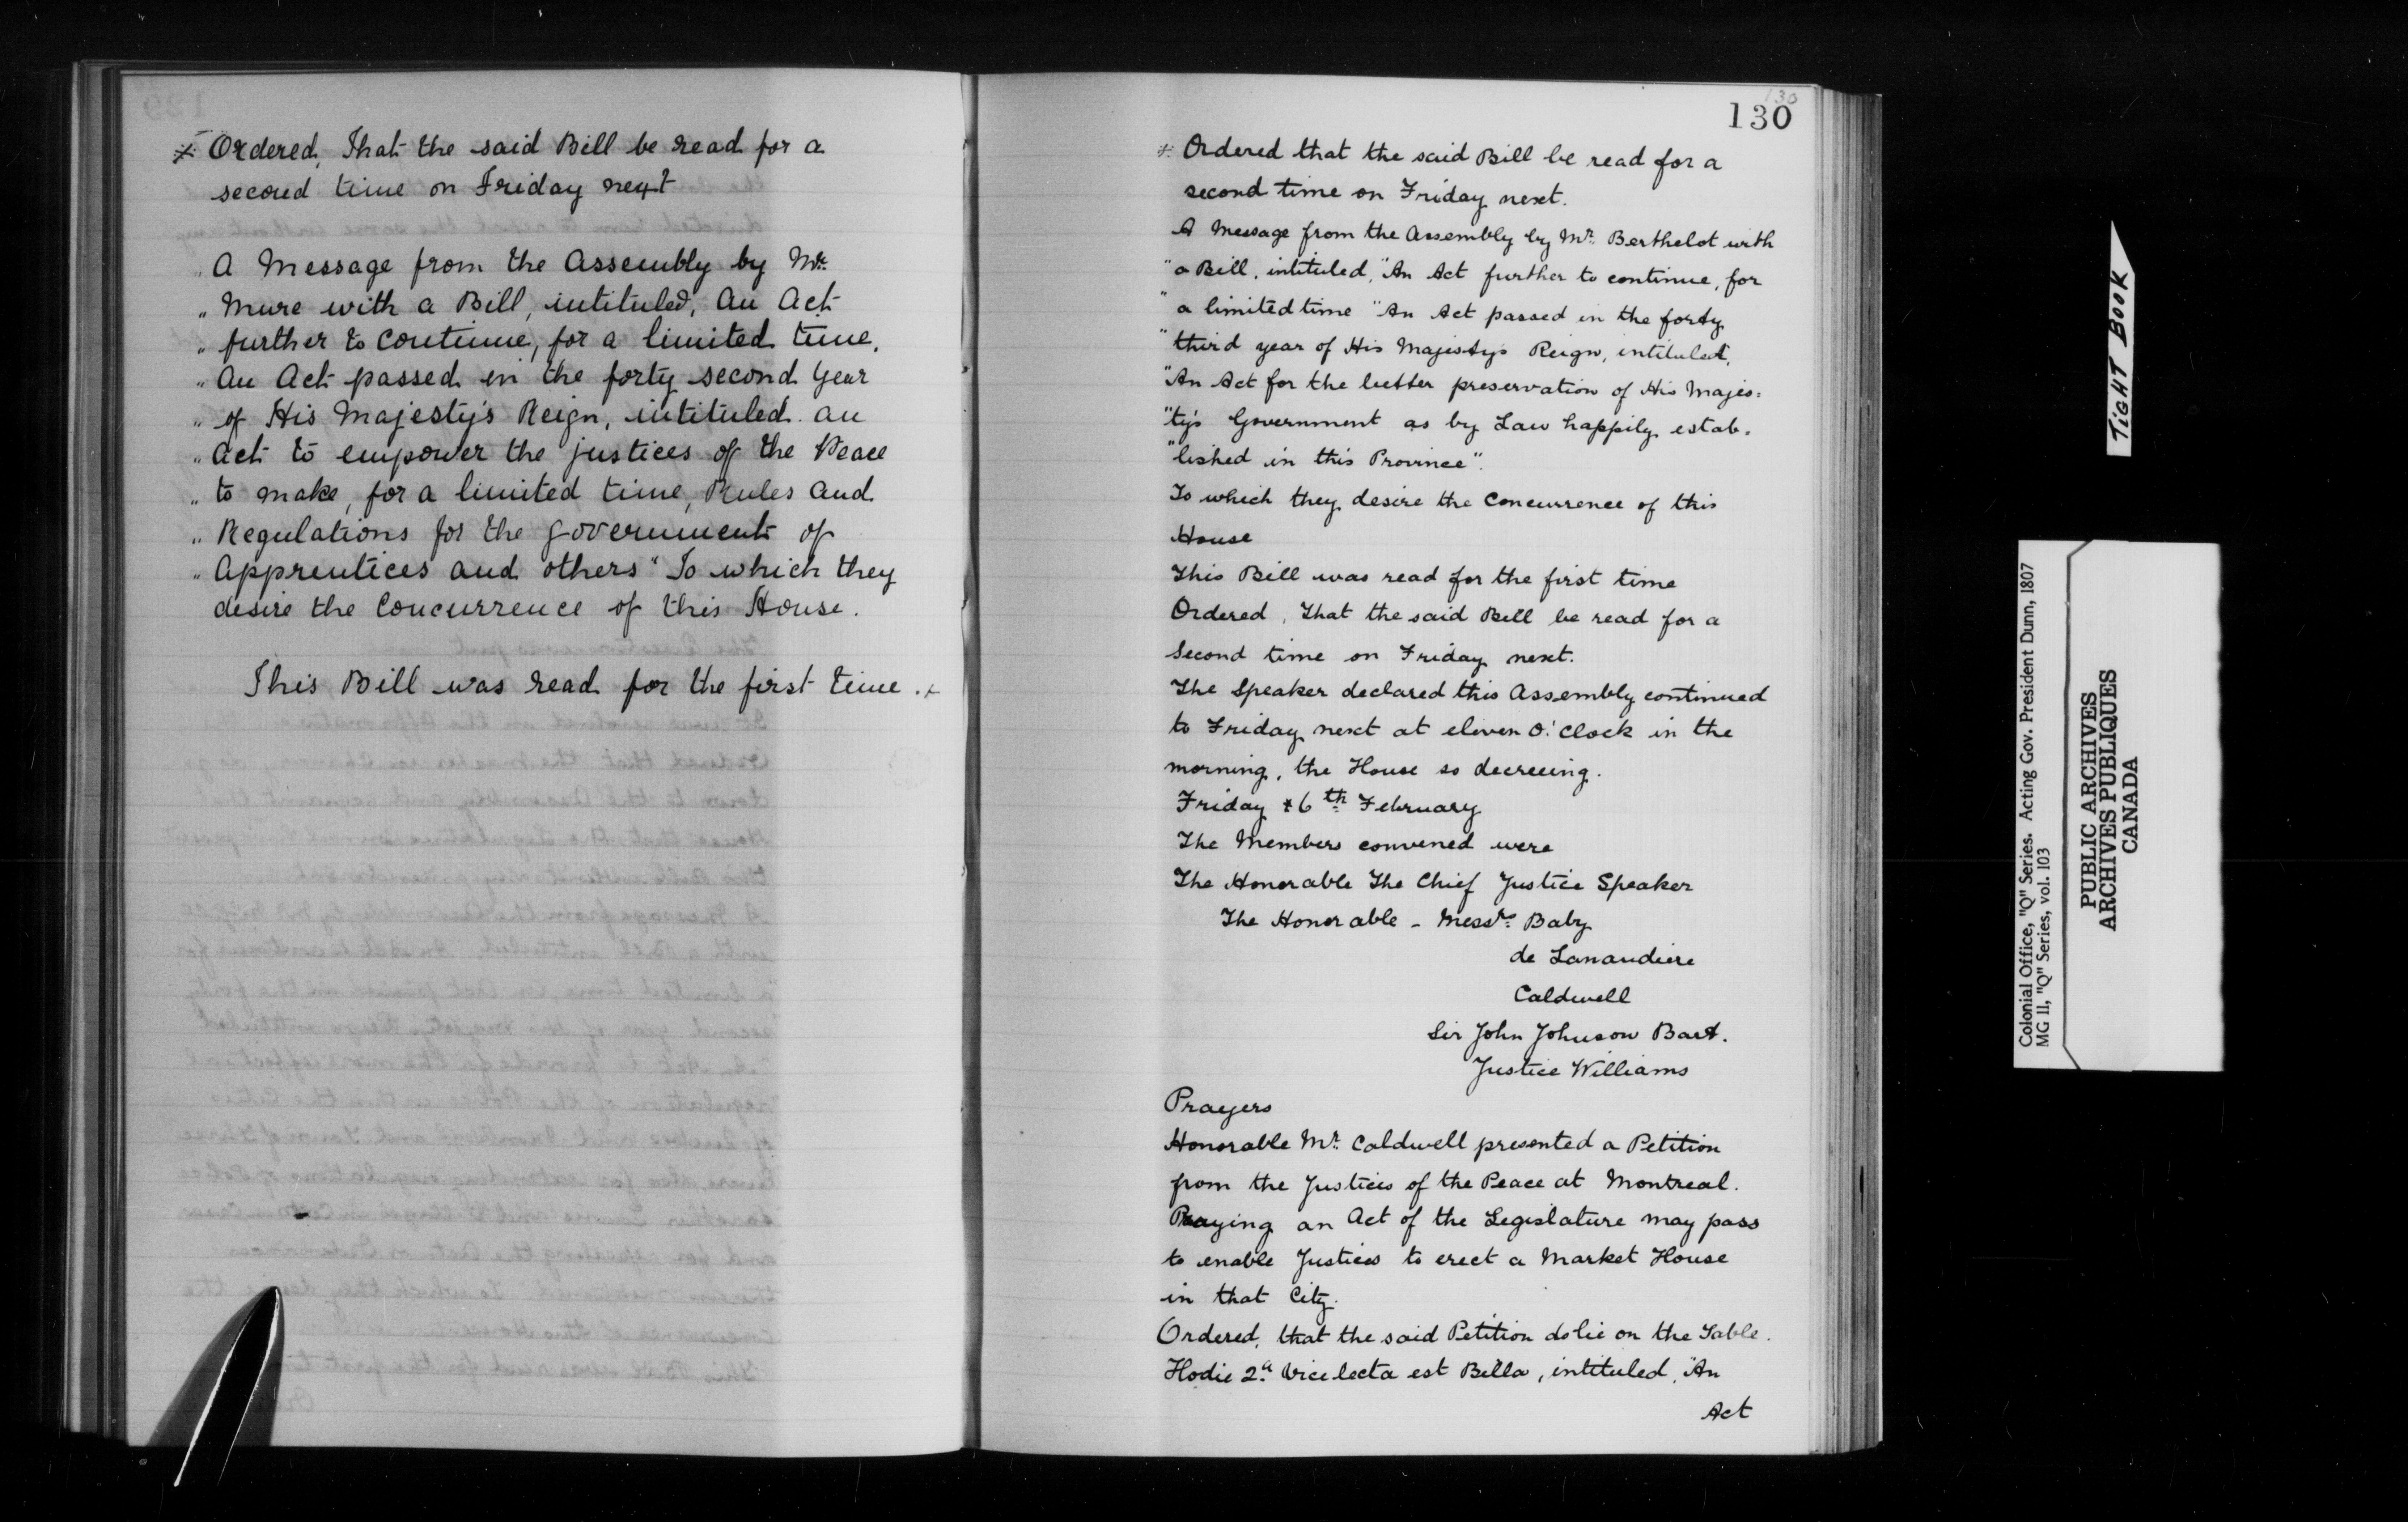 Ordered, That the said Bill be read for a
second time on Friday next
A Message from the Assembly by Mr.
" Mure with a Bill, intituled, An Act
" further to continue, for a limited time,
" An Act passed in the forty second Year
" of His Majesty's Reign, intituled an
" Act to empower the justices of the Peace
" to make, for a limited time, Rules and
" Regulations for the government of
" Apprentices and others" To which they
desire the Concurrence of this House.
This Bill was read for the first time . x
130
130
Ordered that the said Bill be read for a
second time on Friday next.
A Message from the Assembly by Mr. Berthelot with
"a Bill, intituled, "An Act further to continue, for
"a limited time "An Act passed in the forty
"third year of His Majestys Reign, intituled,
"An Act for the better preservation of His Majes=
"ty's Government as by Law happily estab-
"lished in this Province".
To which they desire the Concurrence of this
House
This Bill was read for the first time
Ordered, That the said Bill be read for a
Second time on Friday next.
The Speaker declared this Assembly continued
to Friday next at eleven O'Clock in the
morning, the House so decreeing.
Friday 6th February
The Members convened were
The Honorable The Chief Justice Speaker
The Honorable - Messrs. Baby
de Lanaudiere
Caldwell
Sir John Johnson Bart.
Justice Williams
Prayers
Honorable Mr. Caldwell presented a Petition
from the Justices of the Peace at Montreal.
Praying an Act of the Legislature may pass
to enable Justices to erect a Market House
in that City.
Ordered, that the said Petition do lie on the Table.
Hodie 2a. vice lecta est Billa, intituled, "An
Act
TIGHT BOOK
Colonial Office, "Q" Series. Acting Gov. President Dunn, 1807
MG 11, "Q" Series, vol. 103
PUBLIC ARCHIVES
ARCHIVES PUBLIQUES
CANADA